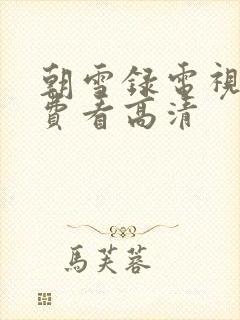 朝雪録電視
費看高清
馬芙蓉